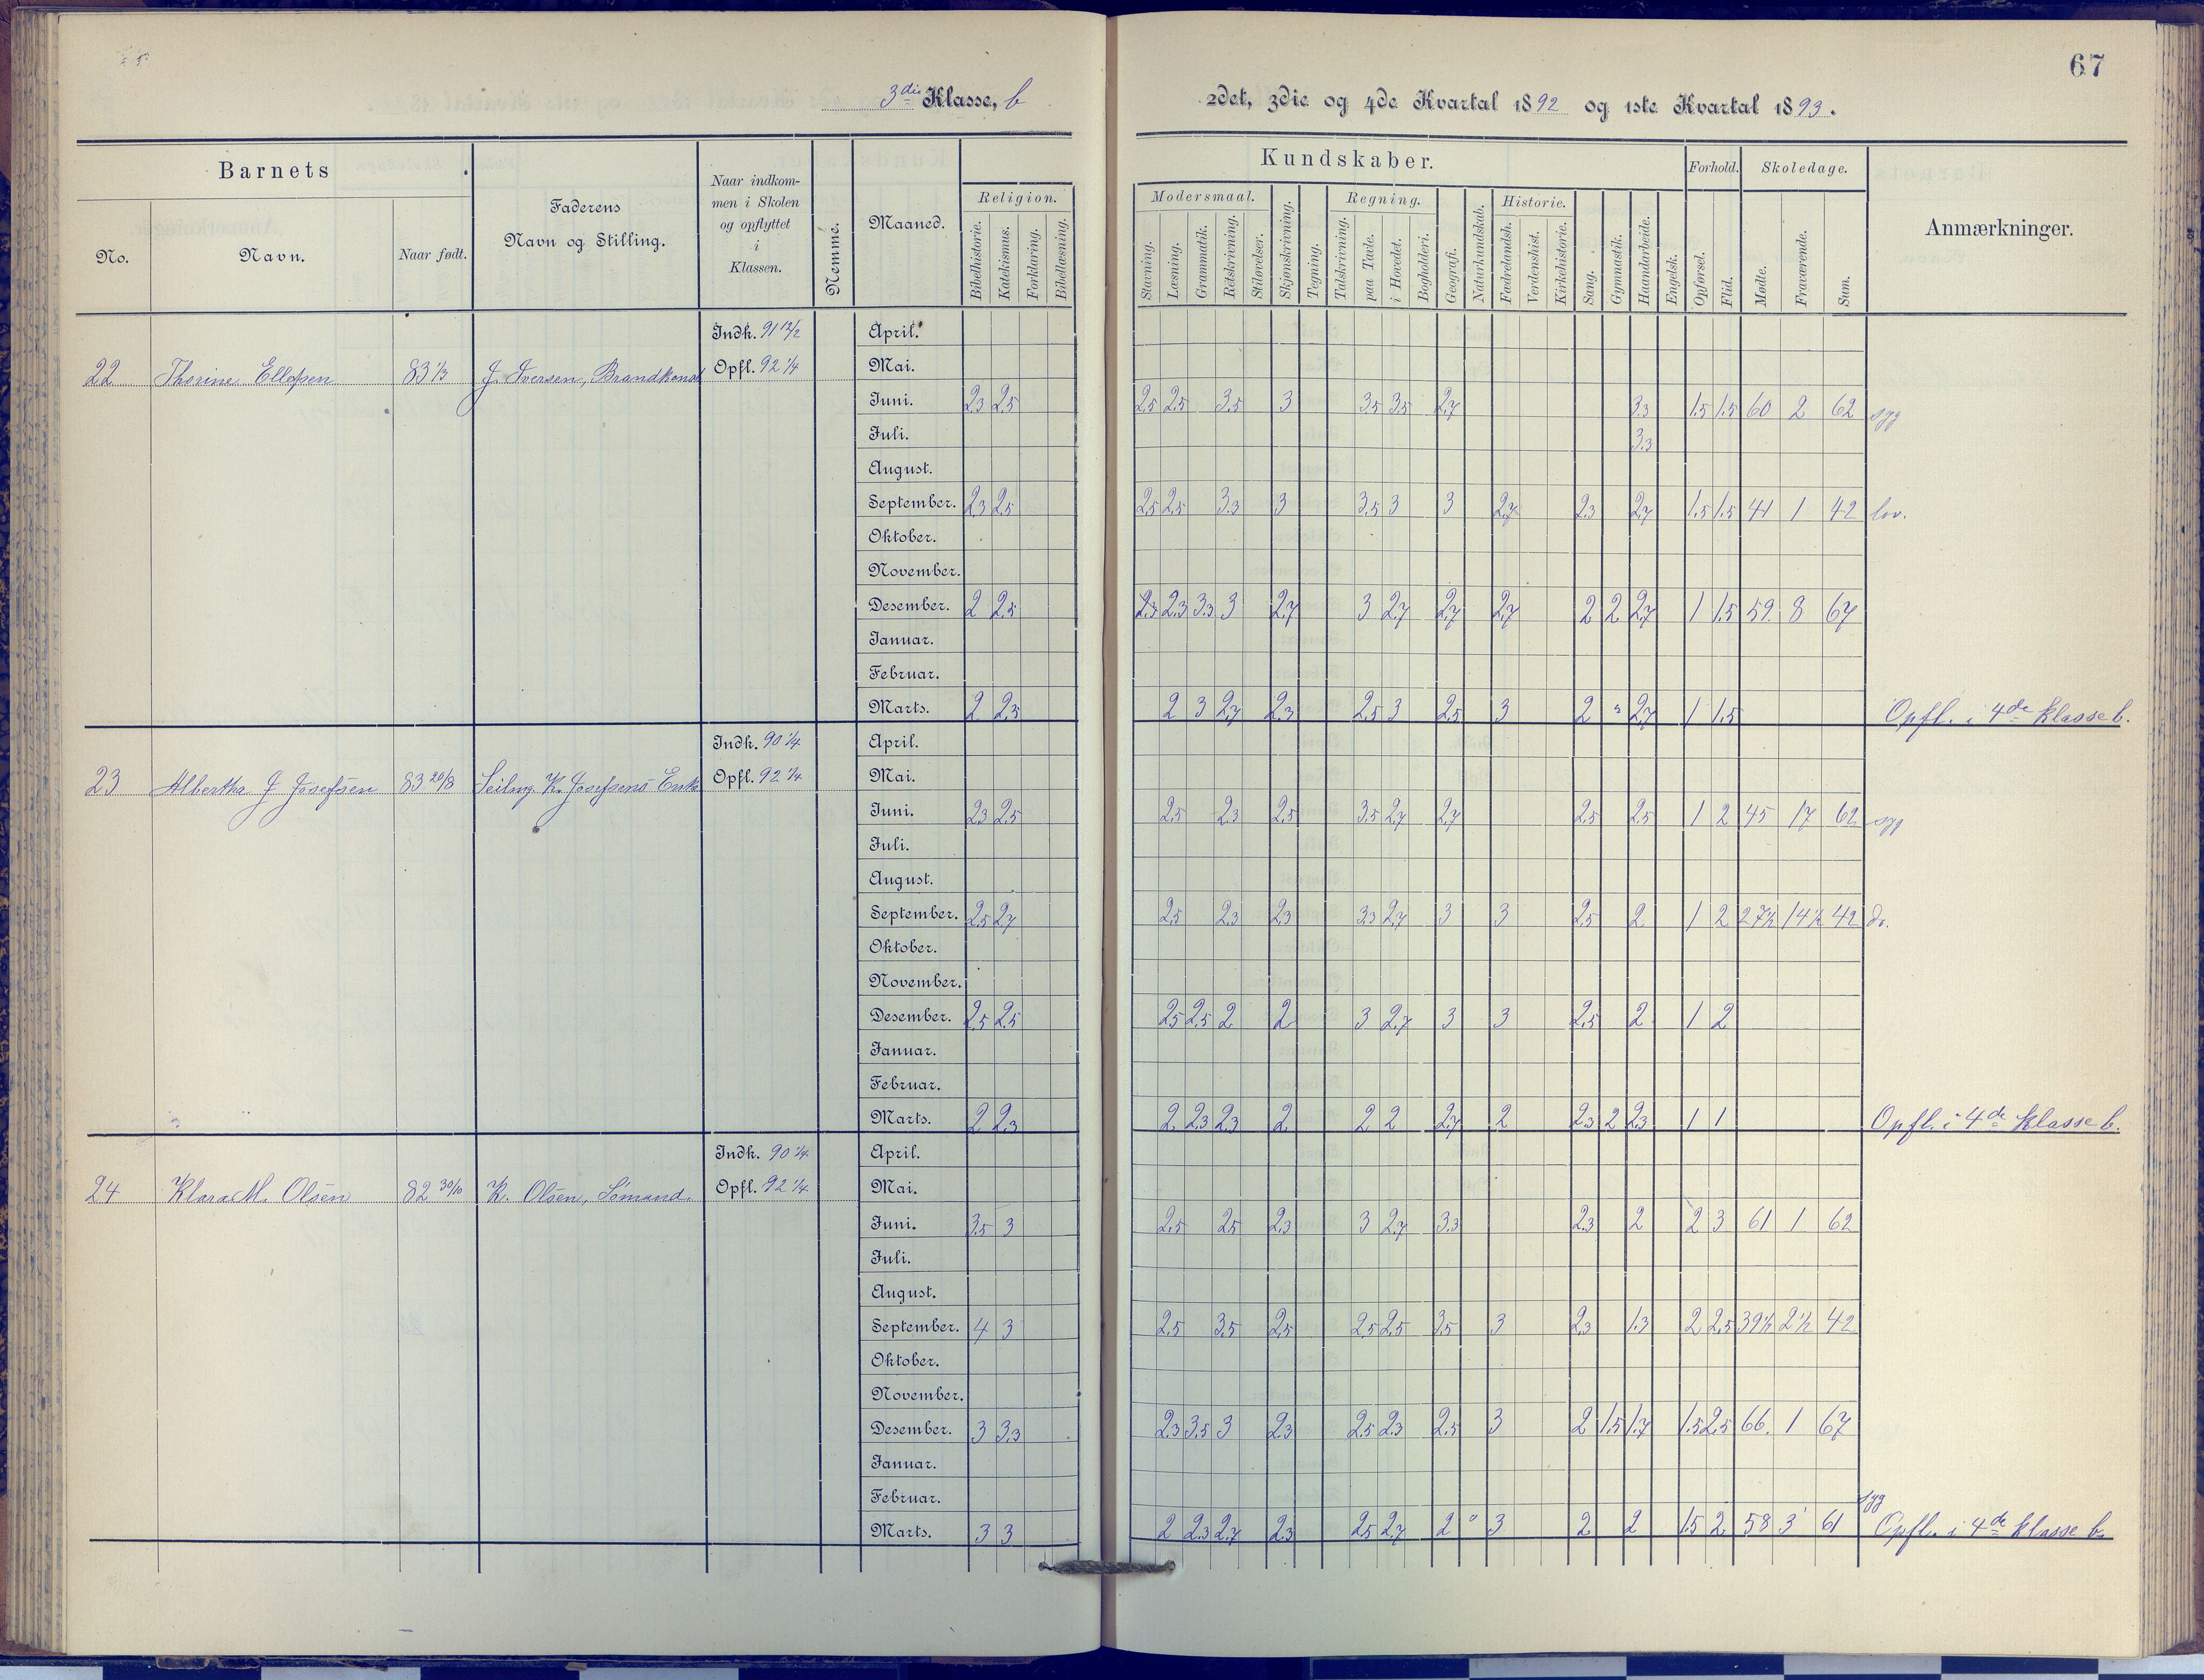 67
3die Klasse, b
2det, 3die og 4de Kvartal 1892 og 1ste Kvartal 1893.
Barnets
No.
Navn.
Naar født.
Faderens
Navn og Stilling.
Naar indkom-
men i Skolen
og opflyttet
i
Klassen.
Nemme.
Maaned.
Kundskaber.
Religion.
Bibelhistorie. Katekismus. Forklaring. Bibellæsning.
Modersmaal.
Stavning. Læsning. Grammatik. Retskrivning. Stiløvelser.
Skjønskrivning. Tegning.
Regning.
Talskrivning. paa Tavle. i Hovedet. Bogholderi.
Geografi. Naturkundskab.
Historie.
Fædrelandsh. Verdenshist. Kirkehistorie.
Sang. Gymnastik. Haandarbeide. Engelsk.
Forhold.
Opførsel. Flid.
Skoledage.
Mødte. Fraværende. Sum.
Anmærkninger.
Indk. 91 12/2 April.
22 Thorine Ellefsen 83 1/3 J. Iversen, Brandkonst Opfl. 92 1/4 Mai.
Juni. 2.3 2.5 2.5 2.5 3.5 3 3.5 3.5 2.7 3.3 1.5 1.5 60 2 62 syg
Juli. 3.3
August.
September. 2.3 2.5 2.5 2.5 3.3 3 3.5 3 3 2.7 2.3 2.7 1.5 1.5 41 1 42 lov.
Oktober.
November.
Desember. 2 2.5 2.3 2.3 3.3 3 2.7 3 2.7 2.7 2.7 2 2 2.7 1 1.5 59. 8 67
Januar.
Februar.
Marts. 2 2.3 2 3 2.7 2.3 2.5 3 2.5 3 2 " 2.7 1 1.5 Opfl. i 4de Klasse b.
Indk. 90 1/4 April.
23 Albertha J Josefsen 83 20/8 Seilmg. K. Josefsens Enke Opfl. 92 1/4 Mai.
Juni. 2.3 2.5 2.5 2.3 2.5 3.5 2.7 2.7 2.5 2.5 1 2 45 17 62 syg
Juli.
August.
September. 2.5 2.7 2.5 2.3 2.3 3.3 2.7 3 3 2.5 2 1 2 27½ 14½ 42 do.
Oktober.
November.
Desember. 2.5 2.5 2.5 2.5 2 2 3 2.7 3 3 2.5 2 1 2
Januar.
Februar.
Marts. 2 2.3 2 2.3 2.3 2 2 2 2.7 2 2.3 2 2.3 1 1 Opfl. i 4de Klasse b.
Indk. 90 1/4 April.
24 Klara M. Olsen 82 30/10 K. Olsen, Sømand. Opfl. 92 1/4 Mai.
Juni. 3.5 3 2.5 2.5 2.3 3 2.7 3.3 2.3 2 2 3 61 1 62
Juli.
August.
September. 4 3 2.5 3.5 2.5 2.5 2.5 3.5 3 2.3 1.3 2 2.5 39½ 2½ 42
Oktober.
November.
Desember. 3 3.3 2.3 3.5 3 2.3 2.5 2.3 2.5 3 2 1.5 1.7 1.5 2.5 66. 1 67
Januar.
Februar.
Marts. 3 3 2 2.3 2.7 2.3 2.5 2.7 2 " 3 2 2 1.5 2 58 3 61 syg Opfl. i 4de Klasse b.